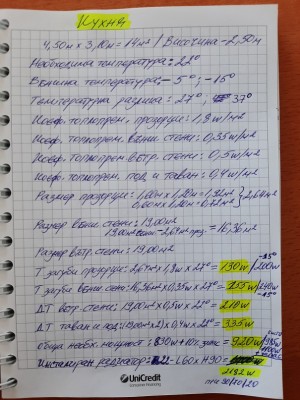 Кухня
4,50м x 3,10м = 14м² / Височина - 2,50м
Необходима температура: 22°
Външна температура: -5°; -15°
Температурна разлика: 27°; 37°
Коеф. топлопрем. прозорци: 1,8 w/м²
Коеф. топлопрем. външ. стени: 0,35 w/м²
Коеф. топлопрем. вътр. стени: 0,5 w/м²
Коеф. топлопрем. под и таван: 0,4 w/м²
Размер прозорци: 1,60м x 1,20м = 1,92м² } 2,64м²
0,60м x 1,20м = 0,72м²
Размер външ. стени: 19,00м²
19,00м² - 2,64м² = 16,36м²
Размер вътр. стени: 19,00м²
Т загуби прозорци: 2,64м² x 1,8w x 27° = 130w /
Т загуби външ. стени: 16,36м² x 0,35w x 27° = 155w /
ΔТ вътр. стени: 19,00м² x 0,5w x 27° = 210w
ΔТ таван и под: x 0,4w x 27° = 335w
Обща необх. мощност: 830w + 10% = 920w /
Инсталиран радиатор: 22 - L60 x H90 =
2182w
UniCredit